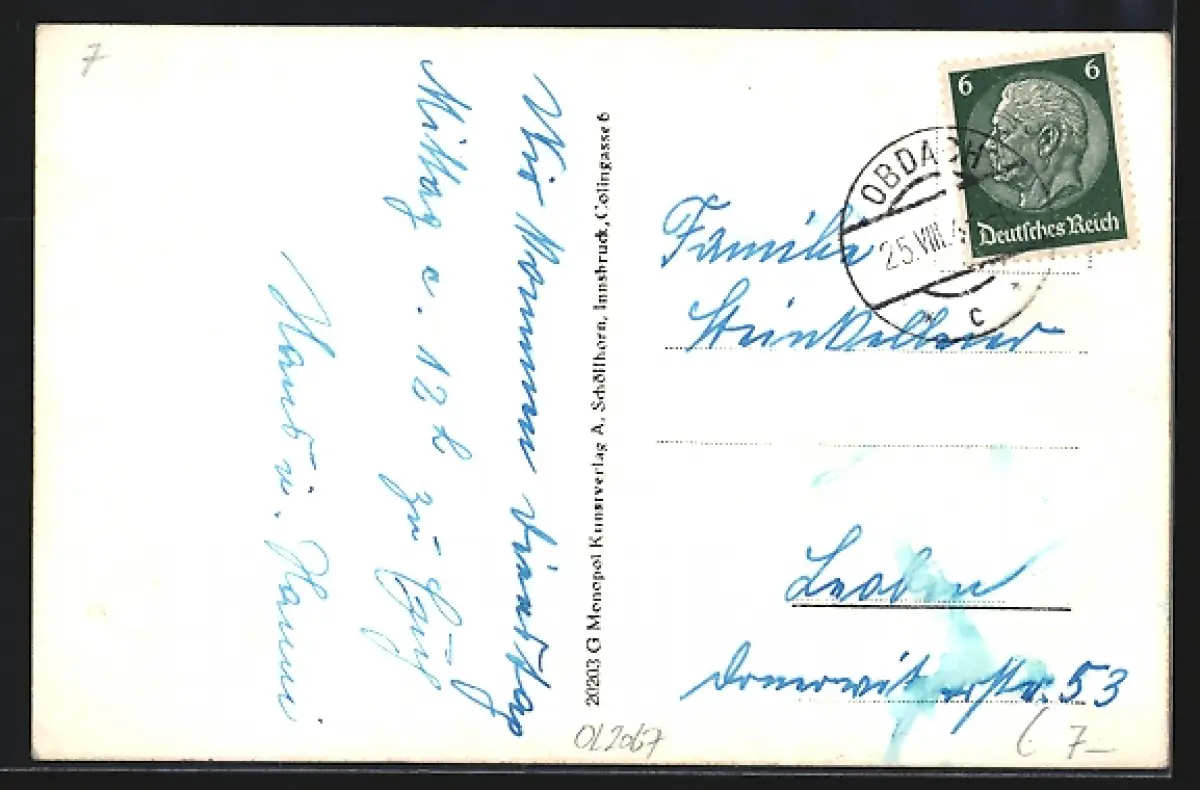 7
Wir kommen Dienstag
Mittag c. 12 h zu Euch
Hans u. Hanni
20203 G Monopol Kunstverlag A. Schöllhorn, Innsbruck, Colingasse 6
6 6
Deutsches Reich
OBDACH
25.VIII.4
c
Familie
Steinkellner
Leoben
53
OL2067
7–